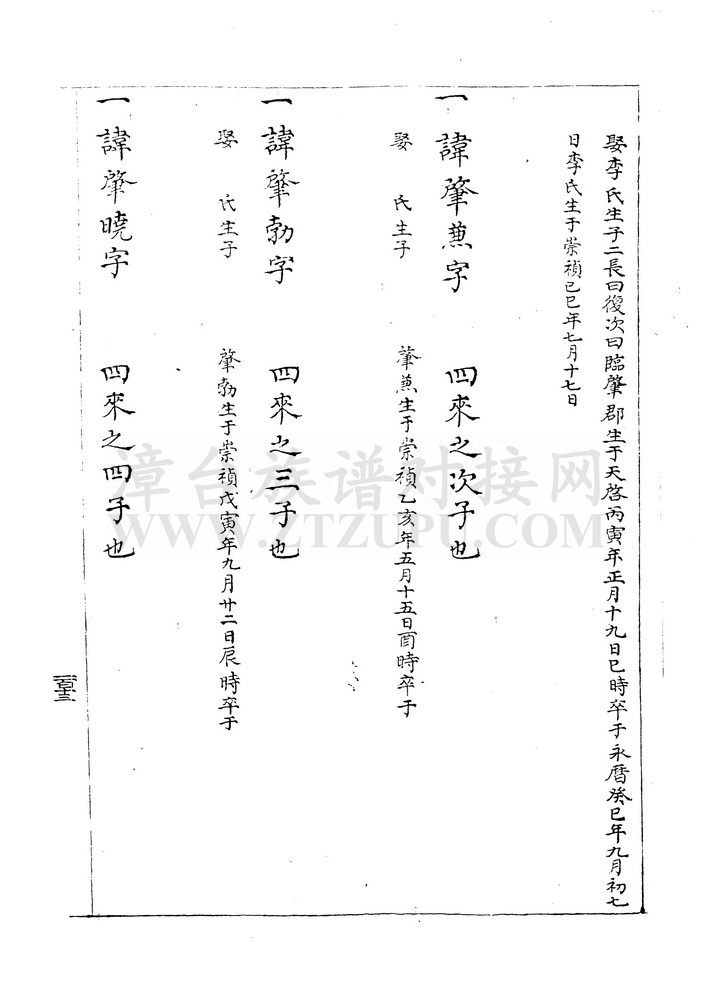 娶李氏生子二長曰復次曰臨肇郡生于天啓丙寅年正月十九日巳時卒于永曆癸巳年九月初七
日李氏生于崇禎己巳年七月十七日
一諱肇蒽字 四來之次子也
娶 氏生子 肇蒽生于崇禎乙亥年五月十五日酉時卒于
一諱肇勃字 四來之三子也
娶 氏生子 肇勃生于崇禎戊寅年九月廿二日辰時卒于
一諱肇曉字 四來之四子也
漳台族谱对接网
WWW.ZTZUPU.COM